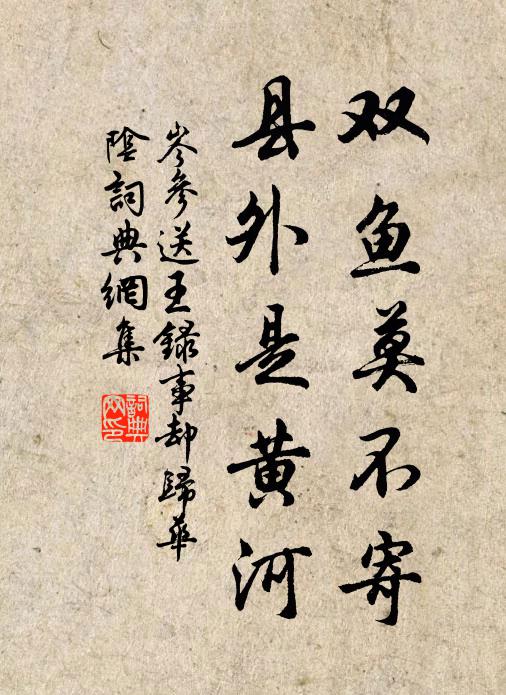 双鱼莫不寄
县外是黄河
岑参送王録事却歸華
陰詞典網集
詞典网印